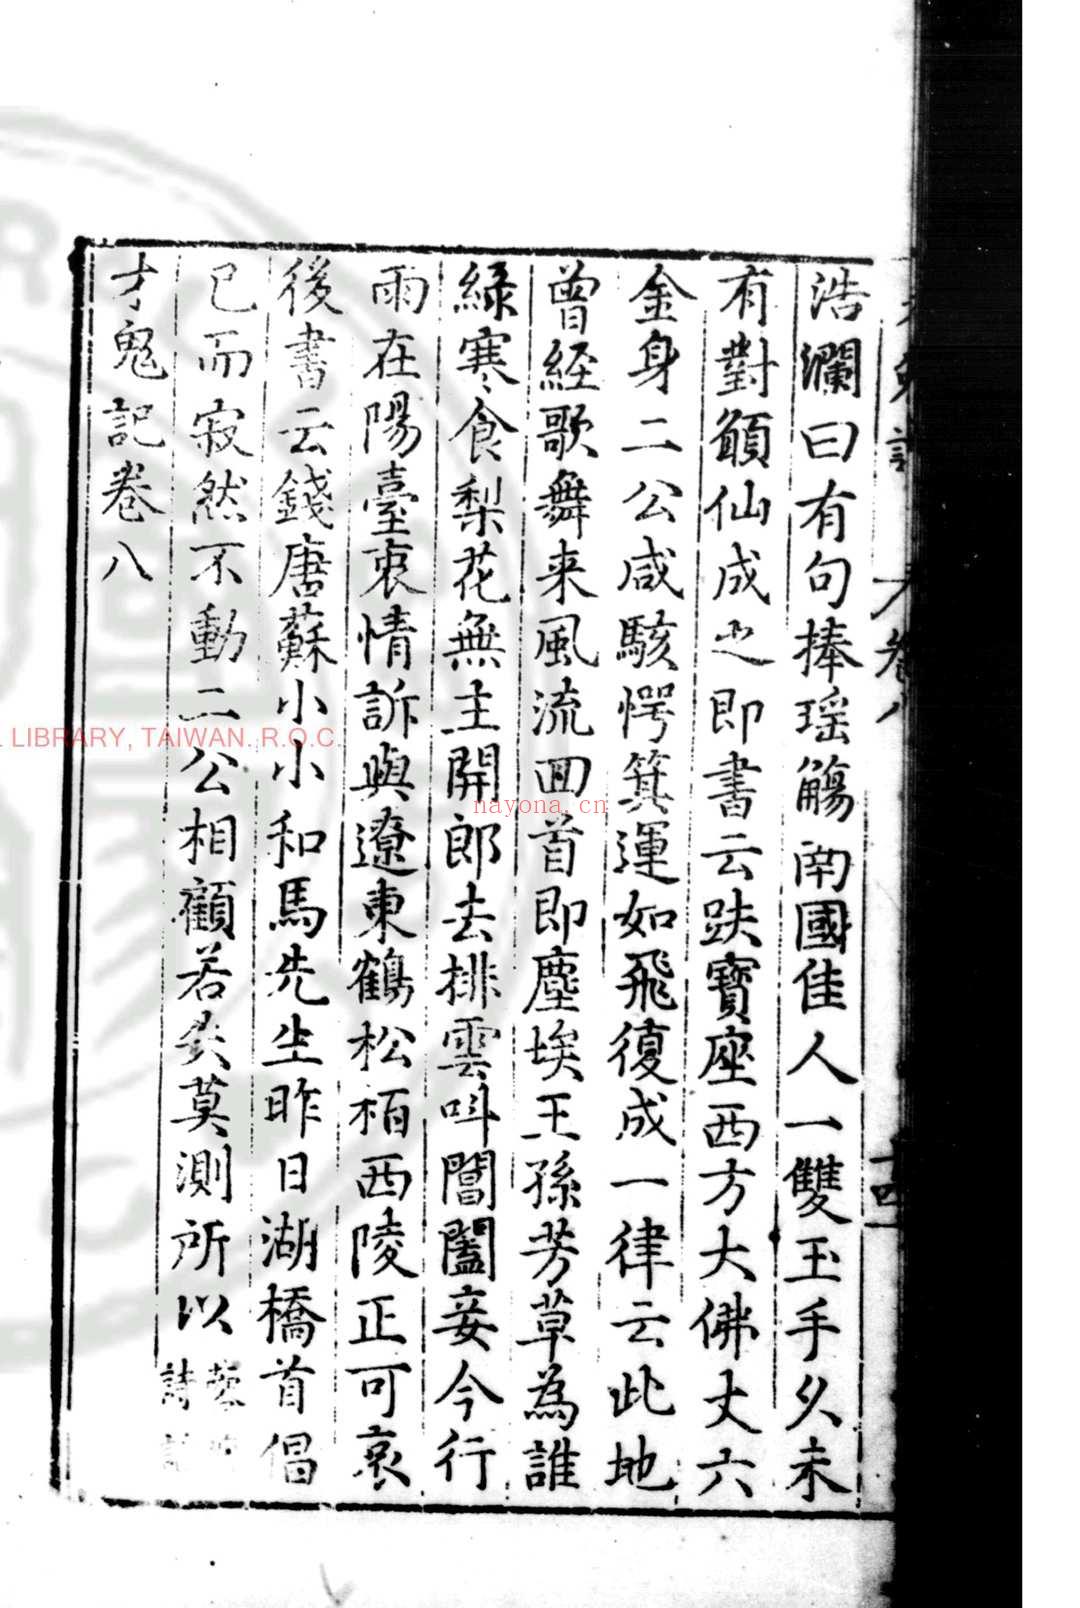 浩瀾曰有句捧瑶觴南國佳人一雙玉手久未
有對願仙成之即書云趺寶座西方大佛丈六
金身二公咸駭愕箕運如飛復成一律云此地
曾經歌舞来風流回首即塵埃王孫芳草為誰
緑寒食梨花無主開郎去排雲呌閶闔妾今行
雨在陽臺衷情訴與遼東鶴松栢西陵正可哀
後書云錢唐蘇小小和馬先生昨日湖橋首倡
已而寂然不動二公相顧若失莫測所以
詩
才鬼記卷八
L LIBRARY, TAIWAN. R.O.C.
nayona.cn